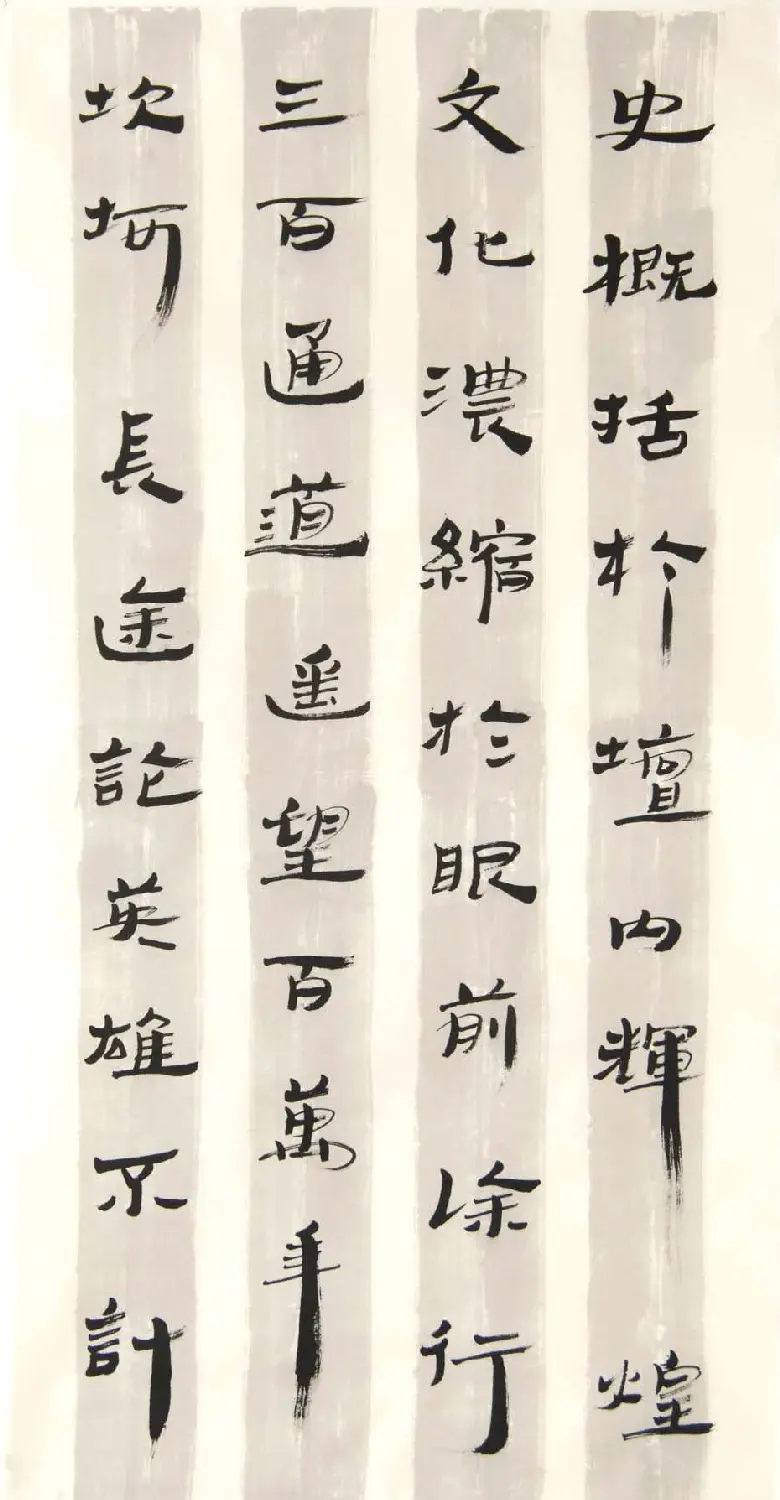 史概括於壇内輝煌
文化濃縮於眼前徐行
三百通道遥望百萬年
坎坷長途論英雄不計